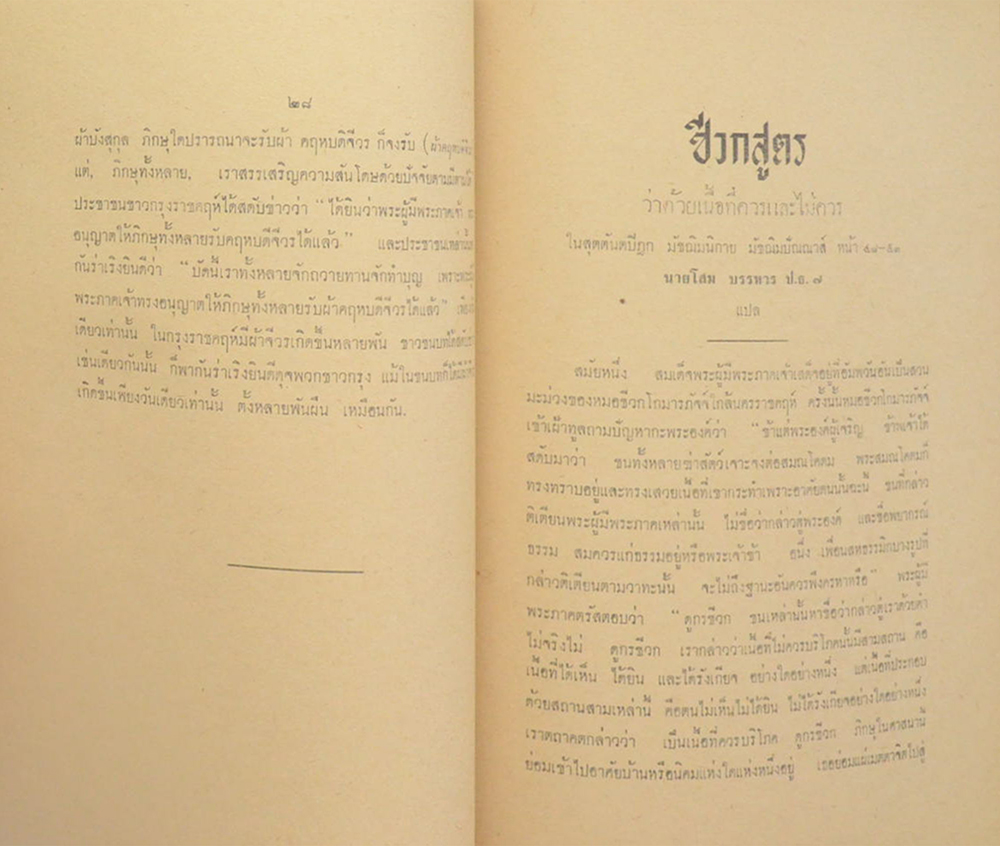 ๒๘
ผ้าบังสุกุล ภิกษุใดปรารถนาจะรับผ้า คฤหบดีจีวร ก็จงรับ (ผ้าคฤหบดีจีวร
แต่, ภิกษุทั้งหลาย, เราสรรเสริญความสันโดษด้วยปัจจัยตามมีตามได้
ประชาชนชาวกรุงราชคฤห์ได้สดับข่าวว่า “ได้ยินว่าพระผู้มีพระภาคเจ้า
อนุญาตให้ภิกษุทั้งหลายรับคฤหบดีจีวรได้แล้ว” และประชาชนเหล่านั้น
กันร่าเริงยินดีว่า “บัดนี้เราทั้งหลายจักถวายทานจักทำบุญ เพราะ
พระภาคเจ้าทรงอนุญาตให้ภิกษุทั้งหลายรับผ้าคฤหบดีจีวรได้แล้ว”
เดียวเท่านั้น ในกรุงราชคฤห์มีผ้าจีวรเกิดขึ้นหลายพัน ชาวชนบท
เช่นเดียวกันนั้น ก็พากันร่าเริงยินดีดุจพวกชาวกรุง แม้ในชนบทก็
เกิดขึ้นเพียงวันเดียวเท่านั้น ตั้งหลายพันผืน เหมือนกัน.
ชีวกสูตร
ว่าด้วยเนื้อที่ควรและไม่ควร
ในสุตตันตปิฎก มัชฌิมนิกาย มัชฌิมปัณณาส์ หน้า ๕๘–๕๓
นายโสม บรรหาร ป.ธ. ๗
แปล
สมัยหนึ่ง สมเด็จพระผู้มีพระภาคเจ้าเสด็จอยู่ที่อัมพวันอันเป็นสวน
มะม่วงของหมอชีวกโกมารภัจจ์ใกล้นครราชคฤห์ ครั้งนั้นหมอชีวกโกมารภัจจ์
เข้าเฝ้าทูลถามปัญหากะพระองค์ว่า “ข้าแต่พระองค์ผู้เจริญ ข้าพเจ้าได้
สดับมาว่า ชนทั้งหลายฆ่าสัตว์เจาะจงต่อสมณโคดม พระสมณโคดมก็
ทรงทราบอยู่และทรงเสวยเนื้อที่เขากระทำเพราะอาศัยตนนั้นฉะนี้ ชนที่กล่าว
ติเตียนพระผู้มีพระภาคเหล่านั้น ไม่ชื่อว่ากล่าวตู่พระองค์ และชื่อพยากรณ์
ธรรม สมควรแก่ธรรมอยู่หรือพระเจ้าข้า อนึ่ง เพื่อนสหธรรมิกบางรูปที่
กล่าวติเตียนตามวาทะนั้น จะไม่ถึงฐานะอันควรพึงครหาหรือ” พระผู้มี
พระภาคตรัสตอบว่า “ดูกรชีวก ชนเหล่านั้นหาชื่อว่ากล่าวตู่เราด้วยคำ
ไม่จริงไม่ ดูกรชีวก เรากล่าวว่าเนื้อที่ไม่ควรบริโภคนั้นมีสามสถาน คือ
เนื้อที่ได้เห็น ได้ยิน และได้รังเกียจ อย่างใดอย่างหนึ่ง แต่เนื้อที่ประกอบ
ด้วยสถานสามเหล่านี้ คือตนไม่เห็นไม่ได้ยิน ไม่ได้รังเกียจอย่างใดอย่างหนึ่ง
เราตถาคตกล่าวว่า เป็นเนื้อที่ควรบริโภค ดูกรชีวก ภิกษุในศาสนานี้
ย่อมเข้าไปอาศัยบ้านหรือนิคมแห่งใดแห่งหนึ่งอยู่ เธอย่อมแผ่เมตตาจิตไปสู่